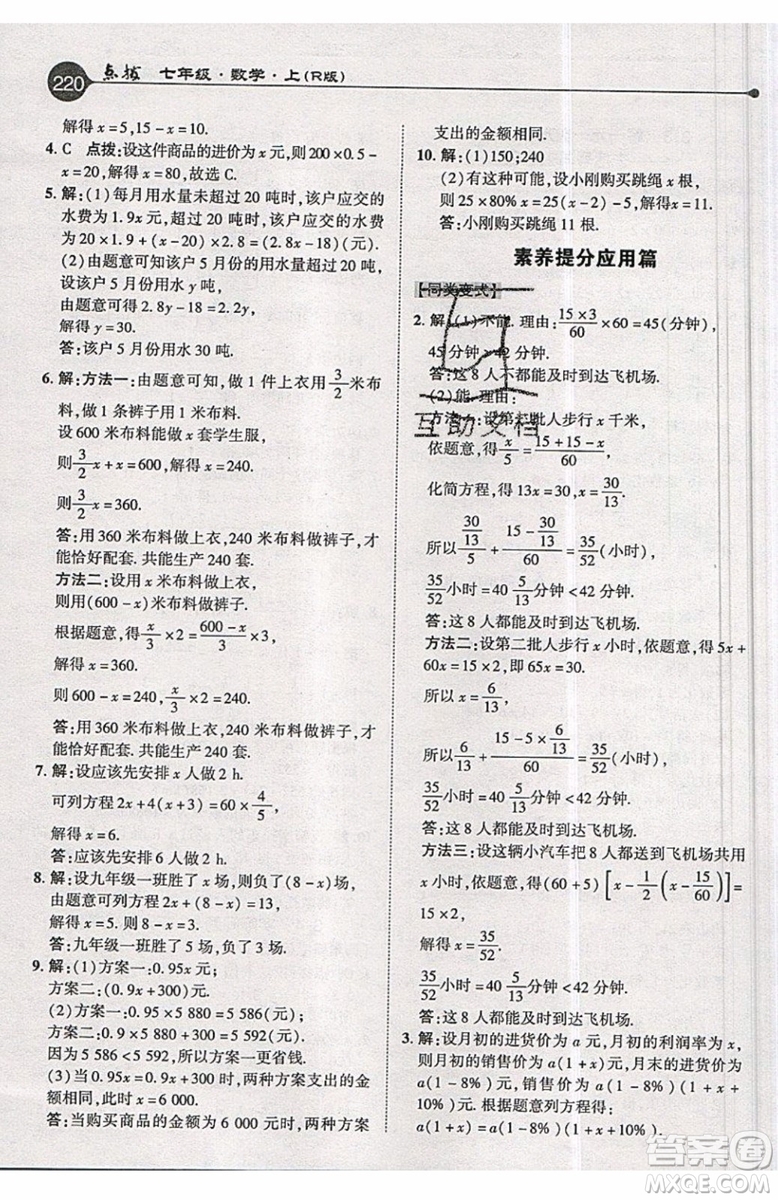 220 点拨 七年级·数学·上(R版)
解得 x=5,15-x=10.
4. C 点拨:设这件商品的进价为 x 元,则 200×0.5-
x=20,解得 x=80,故选 C.
5. 解:(1)每月用水量未超过 20 吨时,该户应交的
水费为 1.9x 元,超过 20 吨时,该户应交的水费
为 20×1.9+(x-20)×2.8=(2.8x-18)(元).
(2)由题意可知该户 5 月份的用水超过 20 吨,
设该户 5 月份用水 x 吨,
由题意可得 2.8x-18=2.2x,
解得 x=30.
答:该户 5 月份用水 30 吨.
6. 解:方法一:由题意可知,做 1 件上衣用 3/2 米布
料,做 1 条裤子用 1 米布料.
设 600 米布料能做 x 套学生服,
则 3/2 x+x=600,解得 x=240.
则 3/2 x=360.
答:用 360 米布料做上衣,240 米布料做裤子,才
能恰好配套.共能生产 240 套.
方法二:设用 x 米布料做上衣,
则用(600-x)米布料做裤子.
根据题意,得 x/3×2=(600-x)/3×3,
解得 x=360.
则 600-x=600-360=240,x/3×2=240,
答:用 360 米布料做上衣,240 米布料做裤子,才
能恰好配套.共能生产 240 套.
7. 解:设应该先安排 x 人做 2 h.
可列方程 2x+4(x+3)=60×4/5,
解得 x=6.
答:应该先安排 6 人做 2 h.
8. 解:设九年级一班胜了 x 场,则负了(8-x)场,
由题意可列方程 2x+(8-x)=13,
解得 x=5. 则 8-x=3.
答:九年级一班胜了 5 场,负了 3 场.
9. 解:(1)方案一:0.95x 元;
方案二:(0.9x+300)元.
(2)方案一:0.95×5 880=5 586(元);
方案二:0.9×5 880+300=5 592(元).
因为 5 586<5 592,所以方案一更省钱.
(3)当 0.95x=0.9x+300 时,两种方案支出的金
额相同,解得 x=6 000.
答:当购买商品的金额为 6 000 元时,两种方案
支出的金额相同.
10. 解:(1)150;240
(2)有这种可能,设小刚购买跳绳 x 根,
则 25×80%x=25(x-2)-5,解得 x=11.
答:小刚购买跳绳 11 根.
素养提分应用篇
【同类变式】
2. 解:(1)不能.理由:(15×3)/60×60=45(分钟),
45 分钟>42 分钟.
答:这 8 人不都能及时到达飞机场.
(2)能.理由:
方法一:设第二批人步行 x 千米,
依题意,得 x/5=(15+15-x)/60,
化简方程,得 13x=30,所以 x=30/13.
所以 (30/13)/5+(15-30/13)/60=35/52(小时),
35/52小时=40 5/13分钟<42 分钟.
答:这 8 人都能及时到达飞机场.
方法二:设第二批人步行 x 小时,依题意,得 5x+
60x=15×2,即 65x=30.
所以 x=6/13,
所以 6/13+(15-5×6/13)/60=35/52(小时),
35/52小时=40 5/13分钟<42 分钟.
答:这 8 人能及时到达飞机场.
方法三:设这辆小汽车把 8 人都送到飞机场共用
x 小时,依题意,得(60+5)[x-1/2(x-15/60)]=
15×2,
解得 x=35/52.
35/52小时=40 5/13分钟<42 分钟.
答:这 8 人都能及时到达飞机场.
3. 解:设月初的进货价为 a 元,月初的利润率为 x,
则月初的销售价为 a(1+x)元,月末的进货价为
a(1-8%)元,销售价为 a(1-8%)[1+(x+
10%)]元. 根据题意列方程,得 a(1+x)=
a(1-8%)[1+(x+10%)].
互助文档
答案圈
MXQE.COM